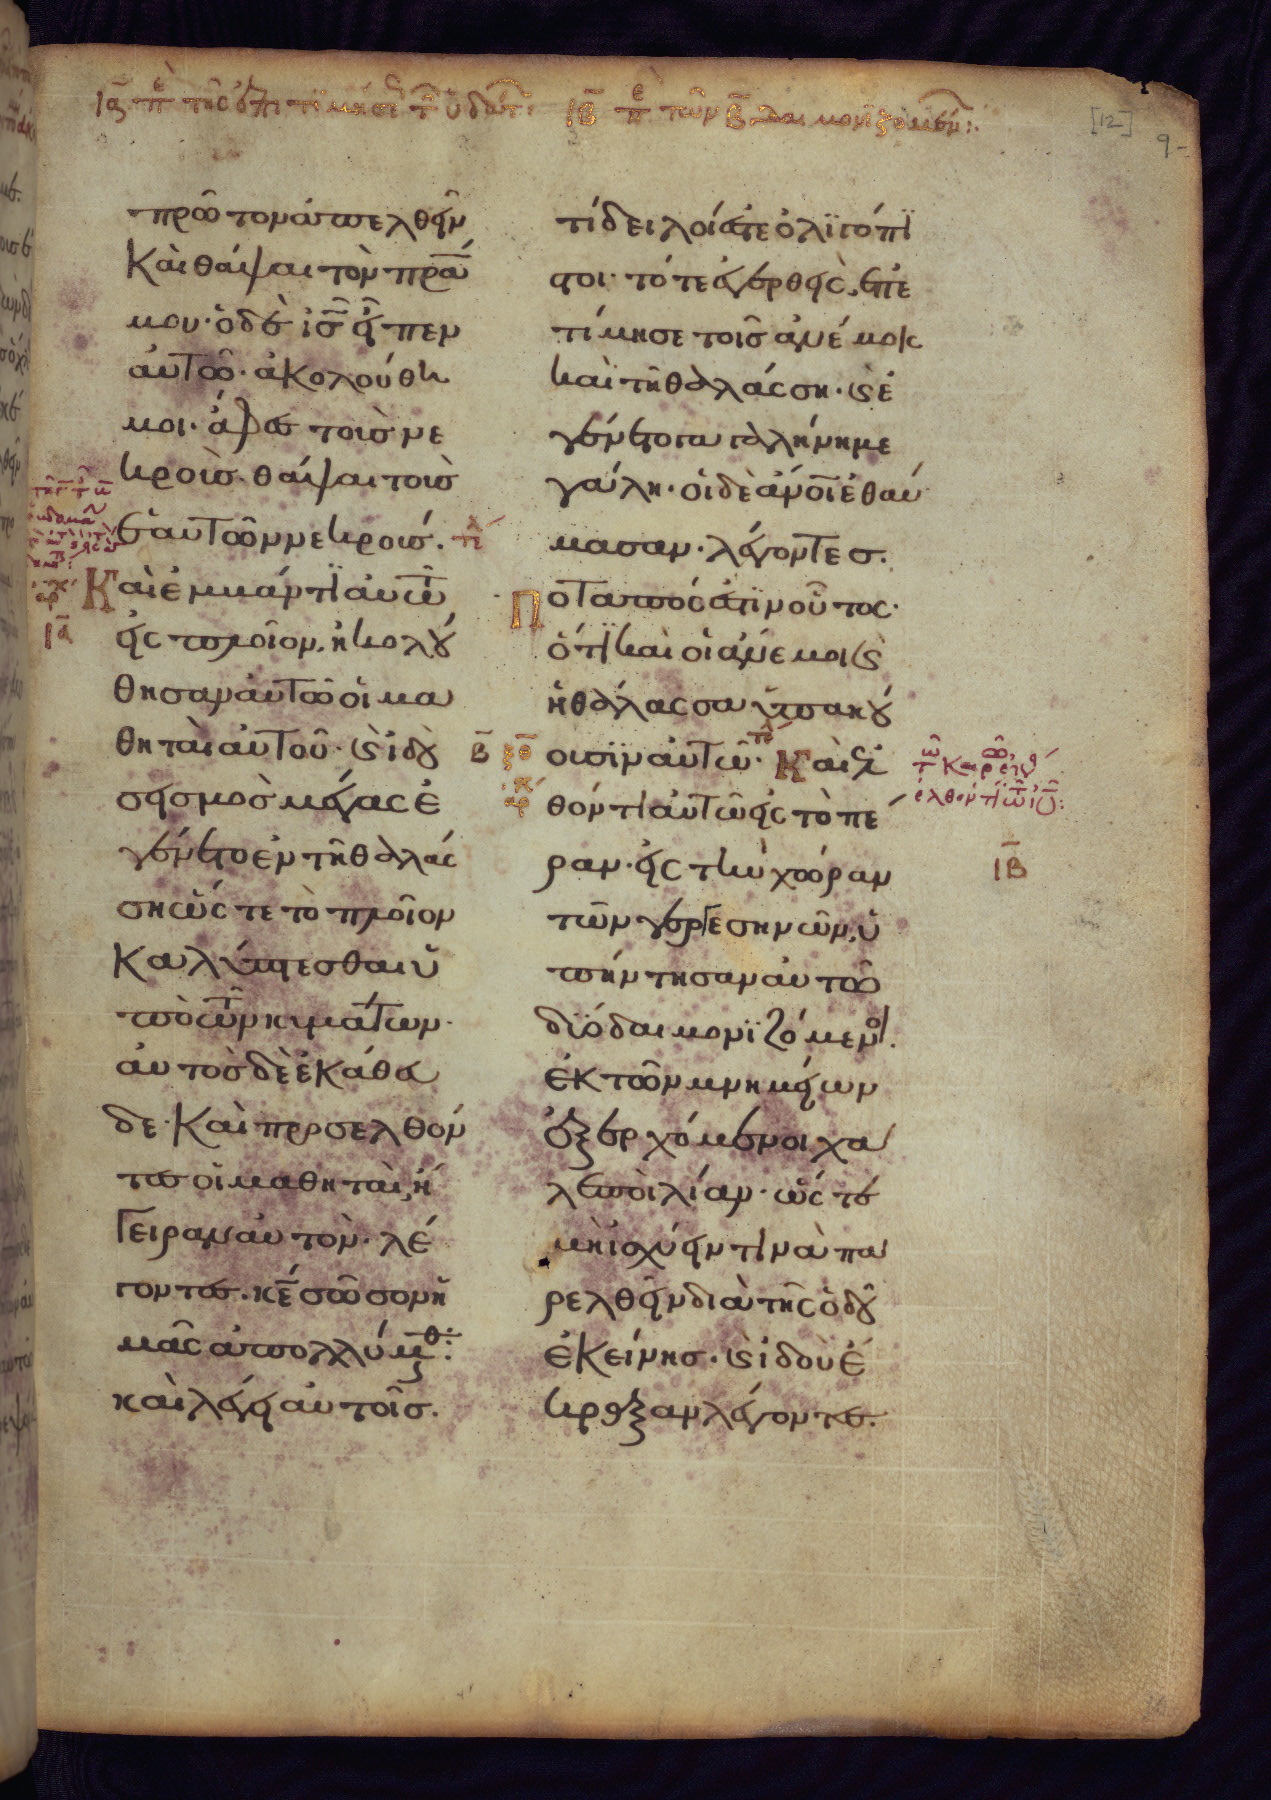 ΙΑ̅ πε τῆς ἐπιτιμήσε τ̅ ὑδάτ: ΙΒ̅ πε τῶν Β̅ δαιμονιζομέν:
πρῶτον ἀπελθεῖν
Καὶ θάψαι τὸν πρ̅α
μου· ὁ δὲ ι̅ς̅ εἶπεν
αὐτῶ· ἀκολούθει
μοι· ἄφες τοὺς νε
κροὺς θάψαι τοὺς
ἑαυτῶν νεκρούς. τε
Καὶ ἐμβάντι αὐτῶ
εἰς πλοῖον, ηκολου
θησαν αὐτῶ οἱ μα
θηταὶ αὐτοῦ· ϛ ἰδοὺ
σεισμὸς μέγας ἐ
γένετο ἐν τῆ θαλάσ
ση ὥστε τὸ πλοῖον
Καλύπτεσθαι ὑ
πὸ τῶν κυμάτων·
αὐτὸς δὲ ἐκάθευ
δε· Καὶ προσελθόν
τες οἱ μαθηταὶ, ἤ
γειραν αὐτὸν· λέ
γοντες· κ̅ε̅ σῶσον ἡ
μᾶς ἀπολλύμεθ:
καὶ λέγει αὐτοῖς.
τί δειλοί ἐστε ὀλϊγόπϊ
στοι· τότε ἐγερθεὶς, ἐπε
τίμησε τοῖς ἀνέμοις
καὶ τῆ θαλάσση· ϛ ἐ
γένετο γαλήνη με
γάλη· οἱ δὲ ἀν̅οι̅ ἐθαύ
μασαν· λέγοντες.
Ποταπός ἐστϊν οὗτος·
ὅτϊ καὶ οἱ ἄνεμοι ϛ
ἡ θάλασσα ὑπακού
ουσϊν αὐτῶ· Καὶ ἐλ
θόντι αὐτῶ εἰς τὸ πέ
ραν· εἰς τὴν χώραν
τῶν γεργεσηνῶν, ὑ
πήντησαν αὐτῶ
δϋό δαιμονϊζόμενοι.
ἐκ τῶν μνημείων
ἐξερχόμενοι χα
λεποὶ λίαν· ὥς τε
μὴ ἰσχύειν τινὰ πα
ρελθεῖν διὰ τῆς ὁδοῦ
ἐκείνης. ϛ ἰδοὺ ἔ
κραξαν λέγοντες.
ΙΑ̅
Β̅
ΙΒ̅
[12]
9-